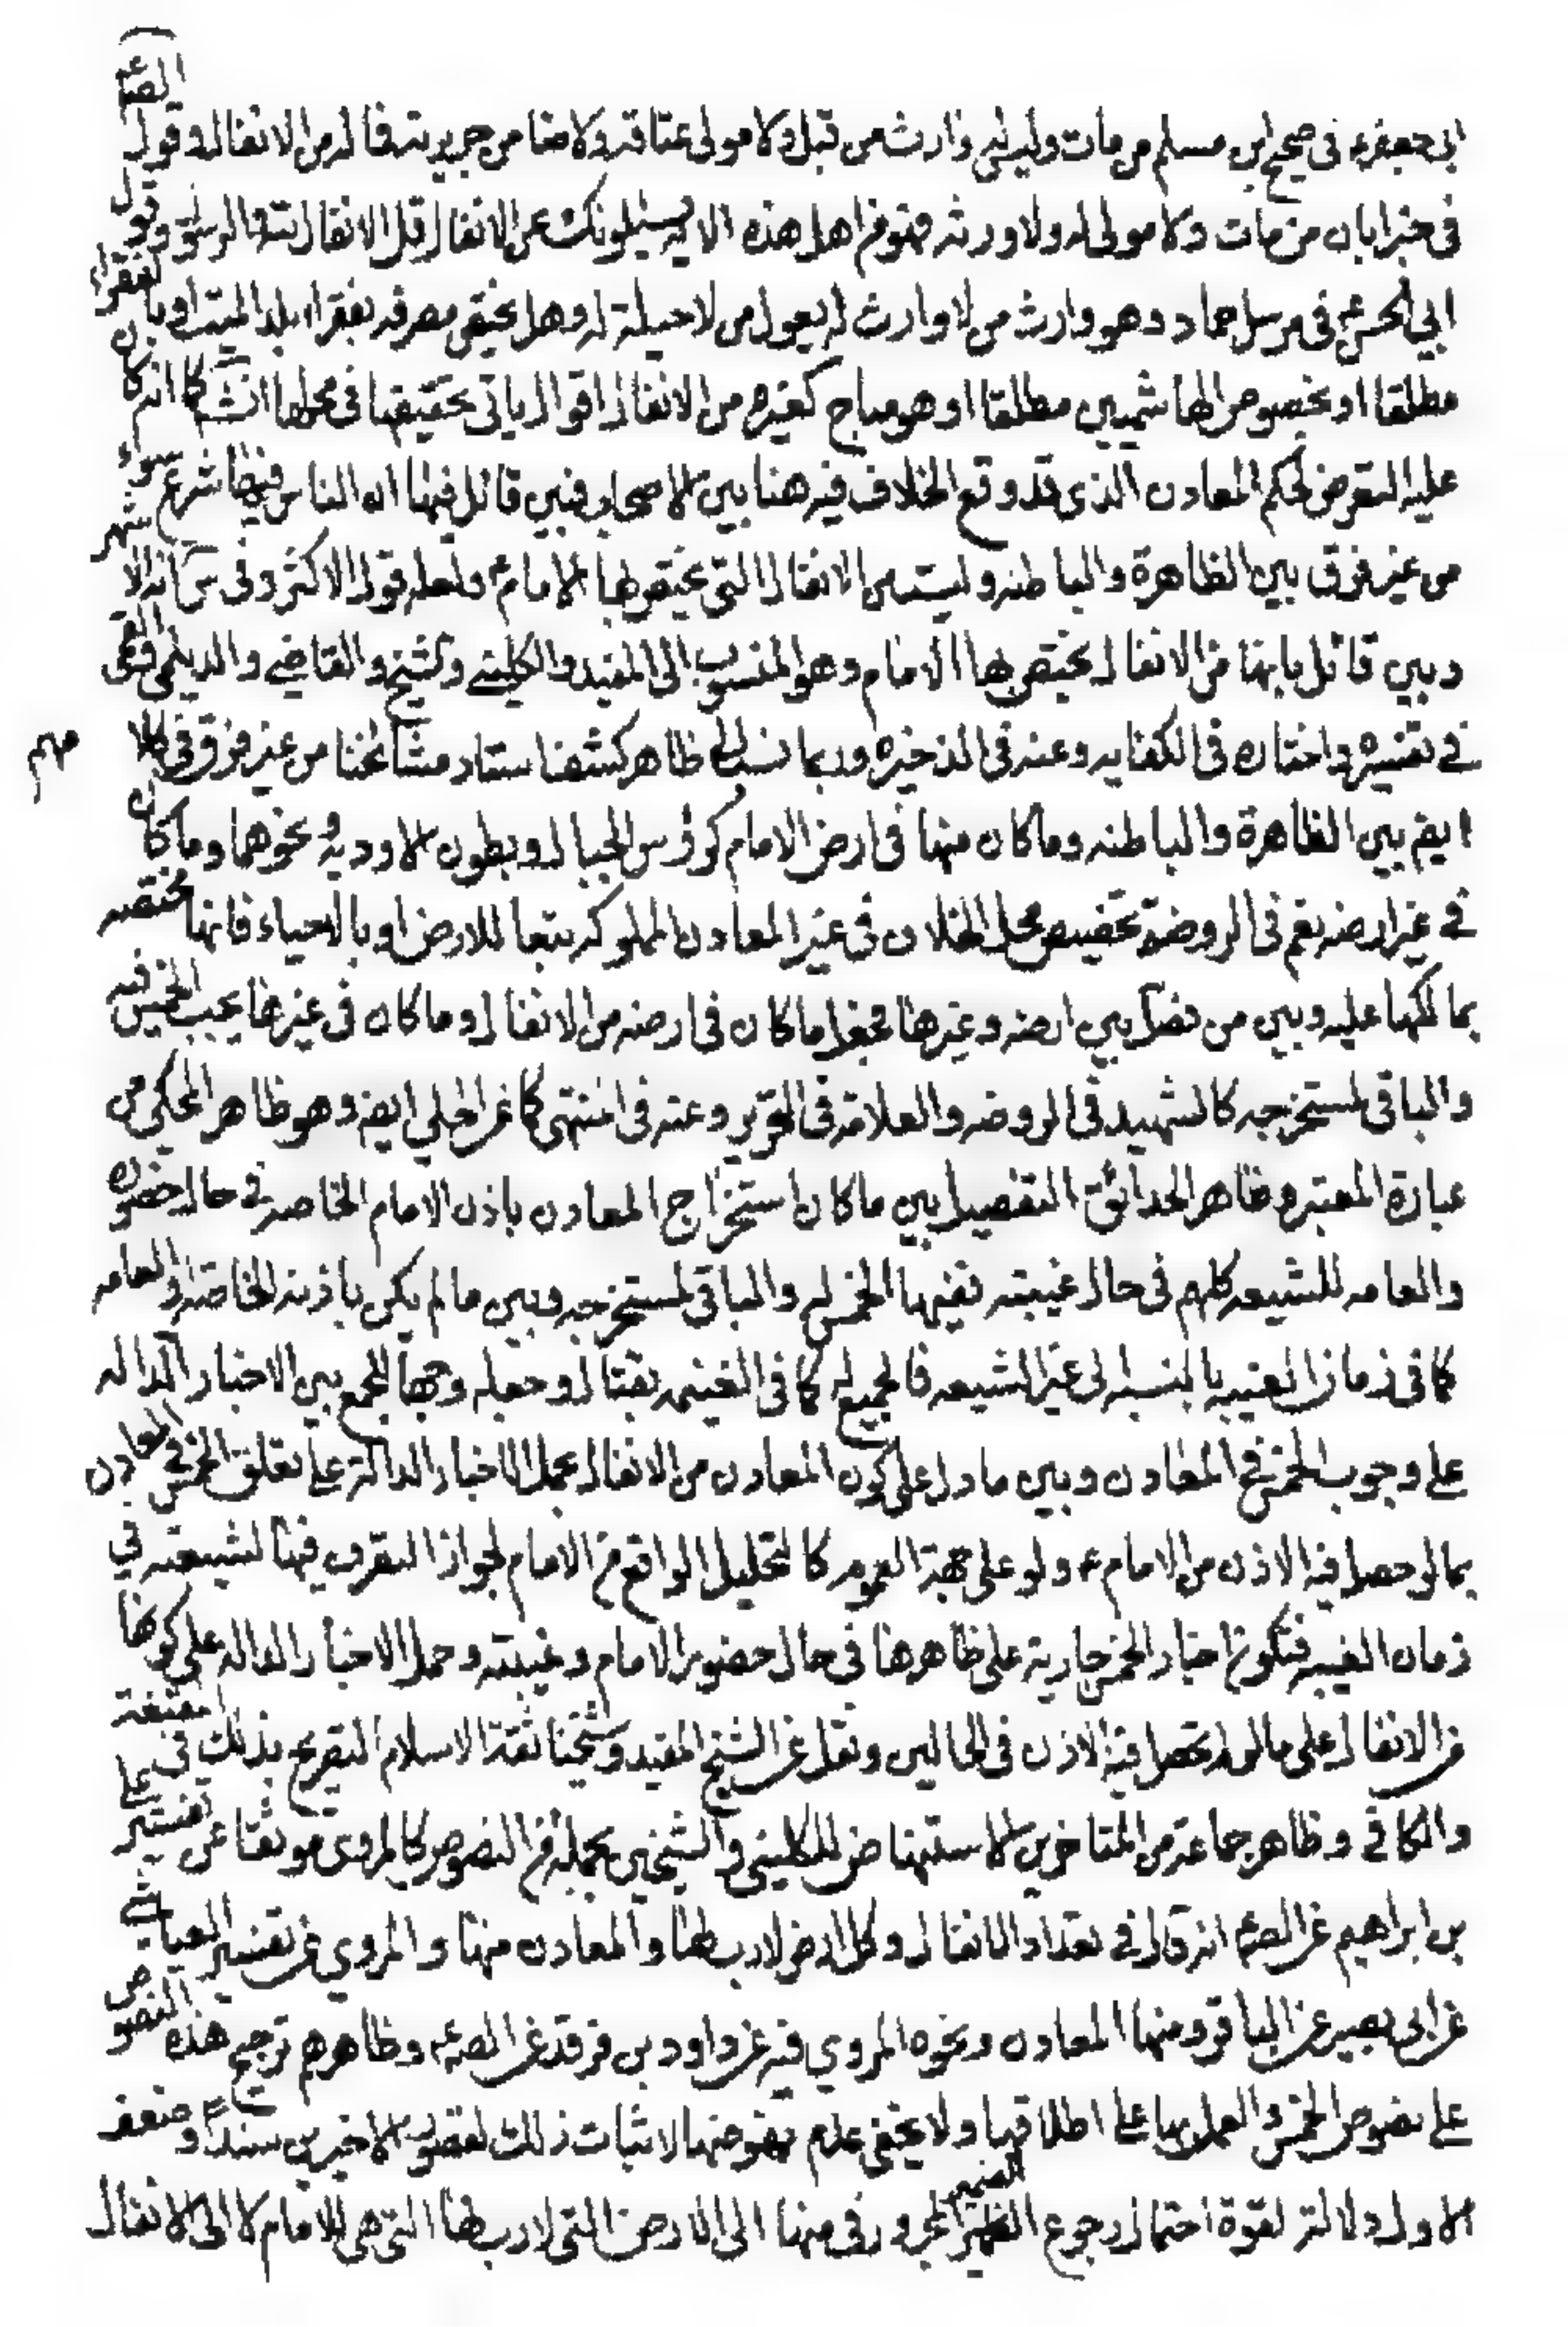 ابى جعفرع فى صحيح ابن مسلم من مات وليس له وارث من قبله ولا مولى عتاقه ولا ضامن جريرته فماله من الانفال وقول الصع
فى خبر ابان من مات ولا مولى له ولا ورثه فهو من اهل هذه الايه يسئلونك عن الانفال قل الانفال لله والرسول وقول
ابي الحسن ع فى مرسل حماد وهو وارث من لا وارث له يعول من لا حيلة له وهل يختص مصرفه بفقراء بلد الميت او بالفقراء
مطلقا او بخصوص الهاشميين مطلقا او هو مباح كغيره من الانفال اقوال ياتى تحقيقها فى محلها انش كا انه كان
عليه التعرض لحكم المعادن الذى قد وقع الخلاف فيه هنا بين الاصحاب فبين قائل فيها ان الناس فيها شرع سواء
من غير فرق بين الظاهرة والباطنه وليست من الانفال التى يختص بها الامام ع ولعله قول الاكثر وفى انه الاشهر
وبين قائل بانها من الانفال يختص بها الامام وهو المنسوب الى المفيد والكلينى والشيخ والقاضى والديلمى والقمى
فى تفسيره واختاره فى الكفايه وعنه فى الذخيره وربما نسب الى ظاهر كشف استاد مشائخنا من غير فرق فى كلامهم
ايضم بين الظاهرة والباطنه وما كان منها فى ارض الامام كرؤس الجبال وبطون الاوديه ونحوهما وما كان
فى غير ارضه نعم فى الروضة تخصيص محل الخلاف فى غير المعادن المملوكه تبعا للارض او بالاحياء فانها مختصه
بمالكها عليه وبين من فصل بين ارضه وغيرها فجعل ما كان فى ارضه من الانفال وما كان فى غيرها يجب الخمس فيه
والباقى لمستخرجه كالشهيد فى الروضه والعلامه فى التحرير وعنه فى المنتهى كا عن الحلي ايضم وهو ظاهر المحكي من
عبارة المعتبر وظاهر الحدائق التفصيل بين ما كان استخراج المعادن باذن الامام الخاصه فى حال حضوره
والعامه للشيعه كلهم فى حال غيبته ففيها الخمس له والباقى لمستخرجه وبين ما لم يكن باذنه الخاصة او العامه
كما فى زمان الغيبه بالنسبه الى غير الشيعه فالجميع له كما فى الغنيمه بقتال وجعله وجها للجمع بين الاخبار الداله
على وجوب الخمس فى المعادن وبين ما دل على كون المعادن من الانفال بحمل الاخبار الدالة على تعلق الخمس فى المعادن
بما لو حصل فيه الاذن من الامام ع ولو على جهة العموم كالتحليل الواقع من الامام لجواز التصرف فيها لشيعته فى
زمان الغيبه فتكون اخبار الخمس جارية على ظاهرها فى حال حضور الامام وغيبته وحمل الاخبار الداله على كونها
من الانفال على ما لم يحصل فيه الاذن فى الحالين ونقل عن الشيخ المفيد وشيخنا ثقة الاسلام التصريح بذلك فى المقنعة
والكافى وظاهر جماعة من المتاخرين الاستنهاض للكلينى والشيخين بجملة من النصوص كالمروى موثقا عن تفسير على
بن ابراهيم عن الصع انه قال فى تعداد الانفال وكل ارض لا رب لها والمعادن منها والمروي عن تفسير العياشى
عن ابى بصير عن الباقر ومنها المعادن ونحوه المروي فيه عن داود بن فرقد عن الصع وظاهرهم ترجيح هذه النصوص
على نصوص الخمس والعمل بها على اطلاقها ولا يخفى عدم نهوضها لاثبات ذلك لقصور الاخيرين سندا وضعف
الاول دلالة لقوة احتمال رجوع الضمير المجرور فى منها الى الارض التى لا رب لها التى هى للامام لا الى الانفال